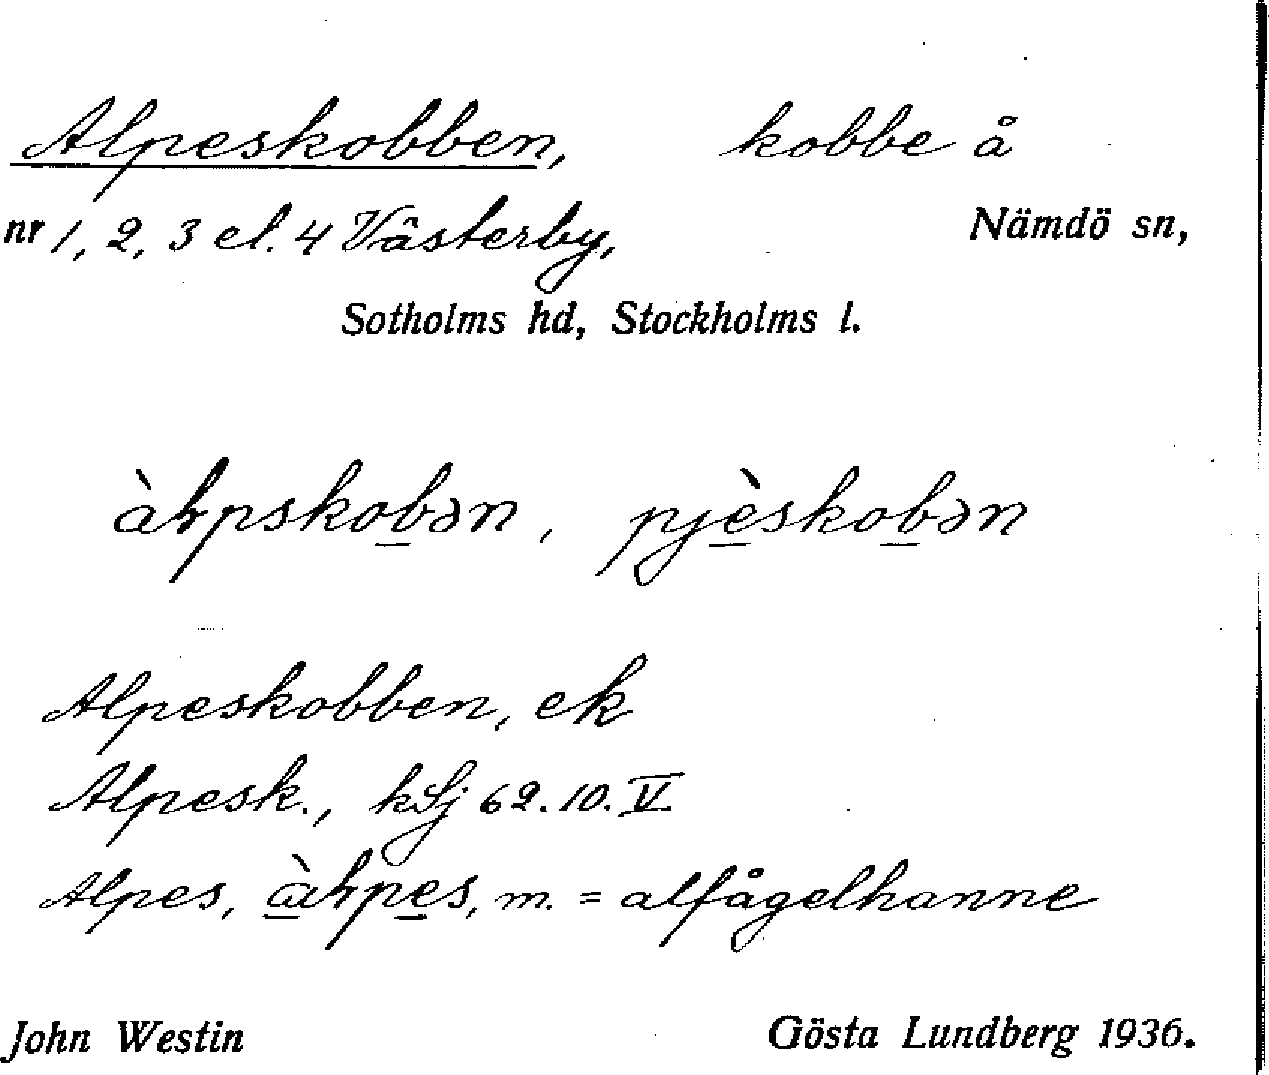 Alpeskobben, kobbe å
nr 1, 2, 3 el. 4 Västerby, Nämdö sn,
Sotholms hd, Stockholms l.
àɽpskobən, pjèskobən
Alpeskobben, ek
Alpesk., kSj 62.10.V
Alpes, àɽpes, m. = alfågelhanne
John Westin Gösta Lundberg 1936.